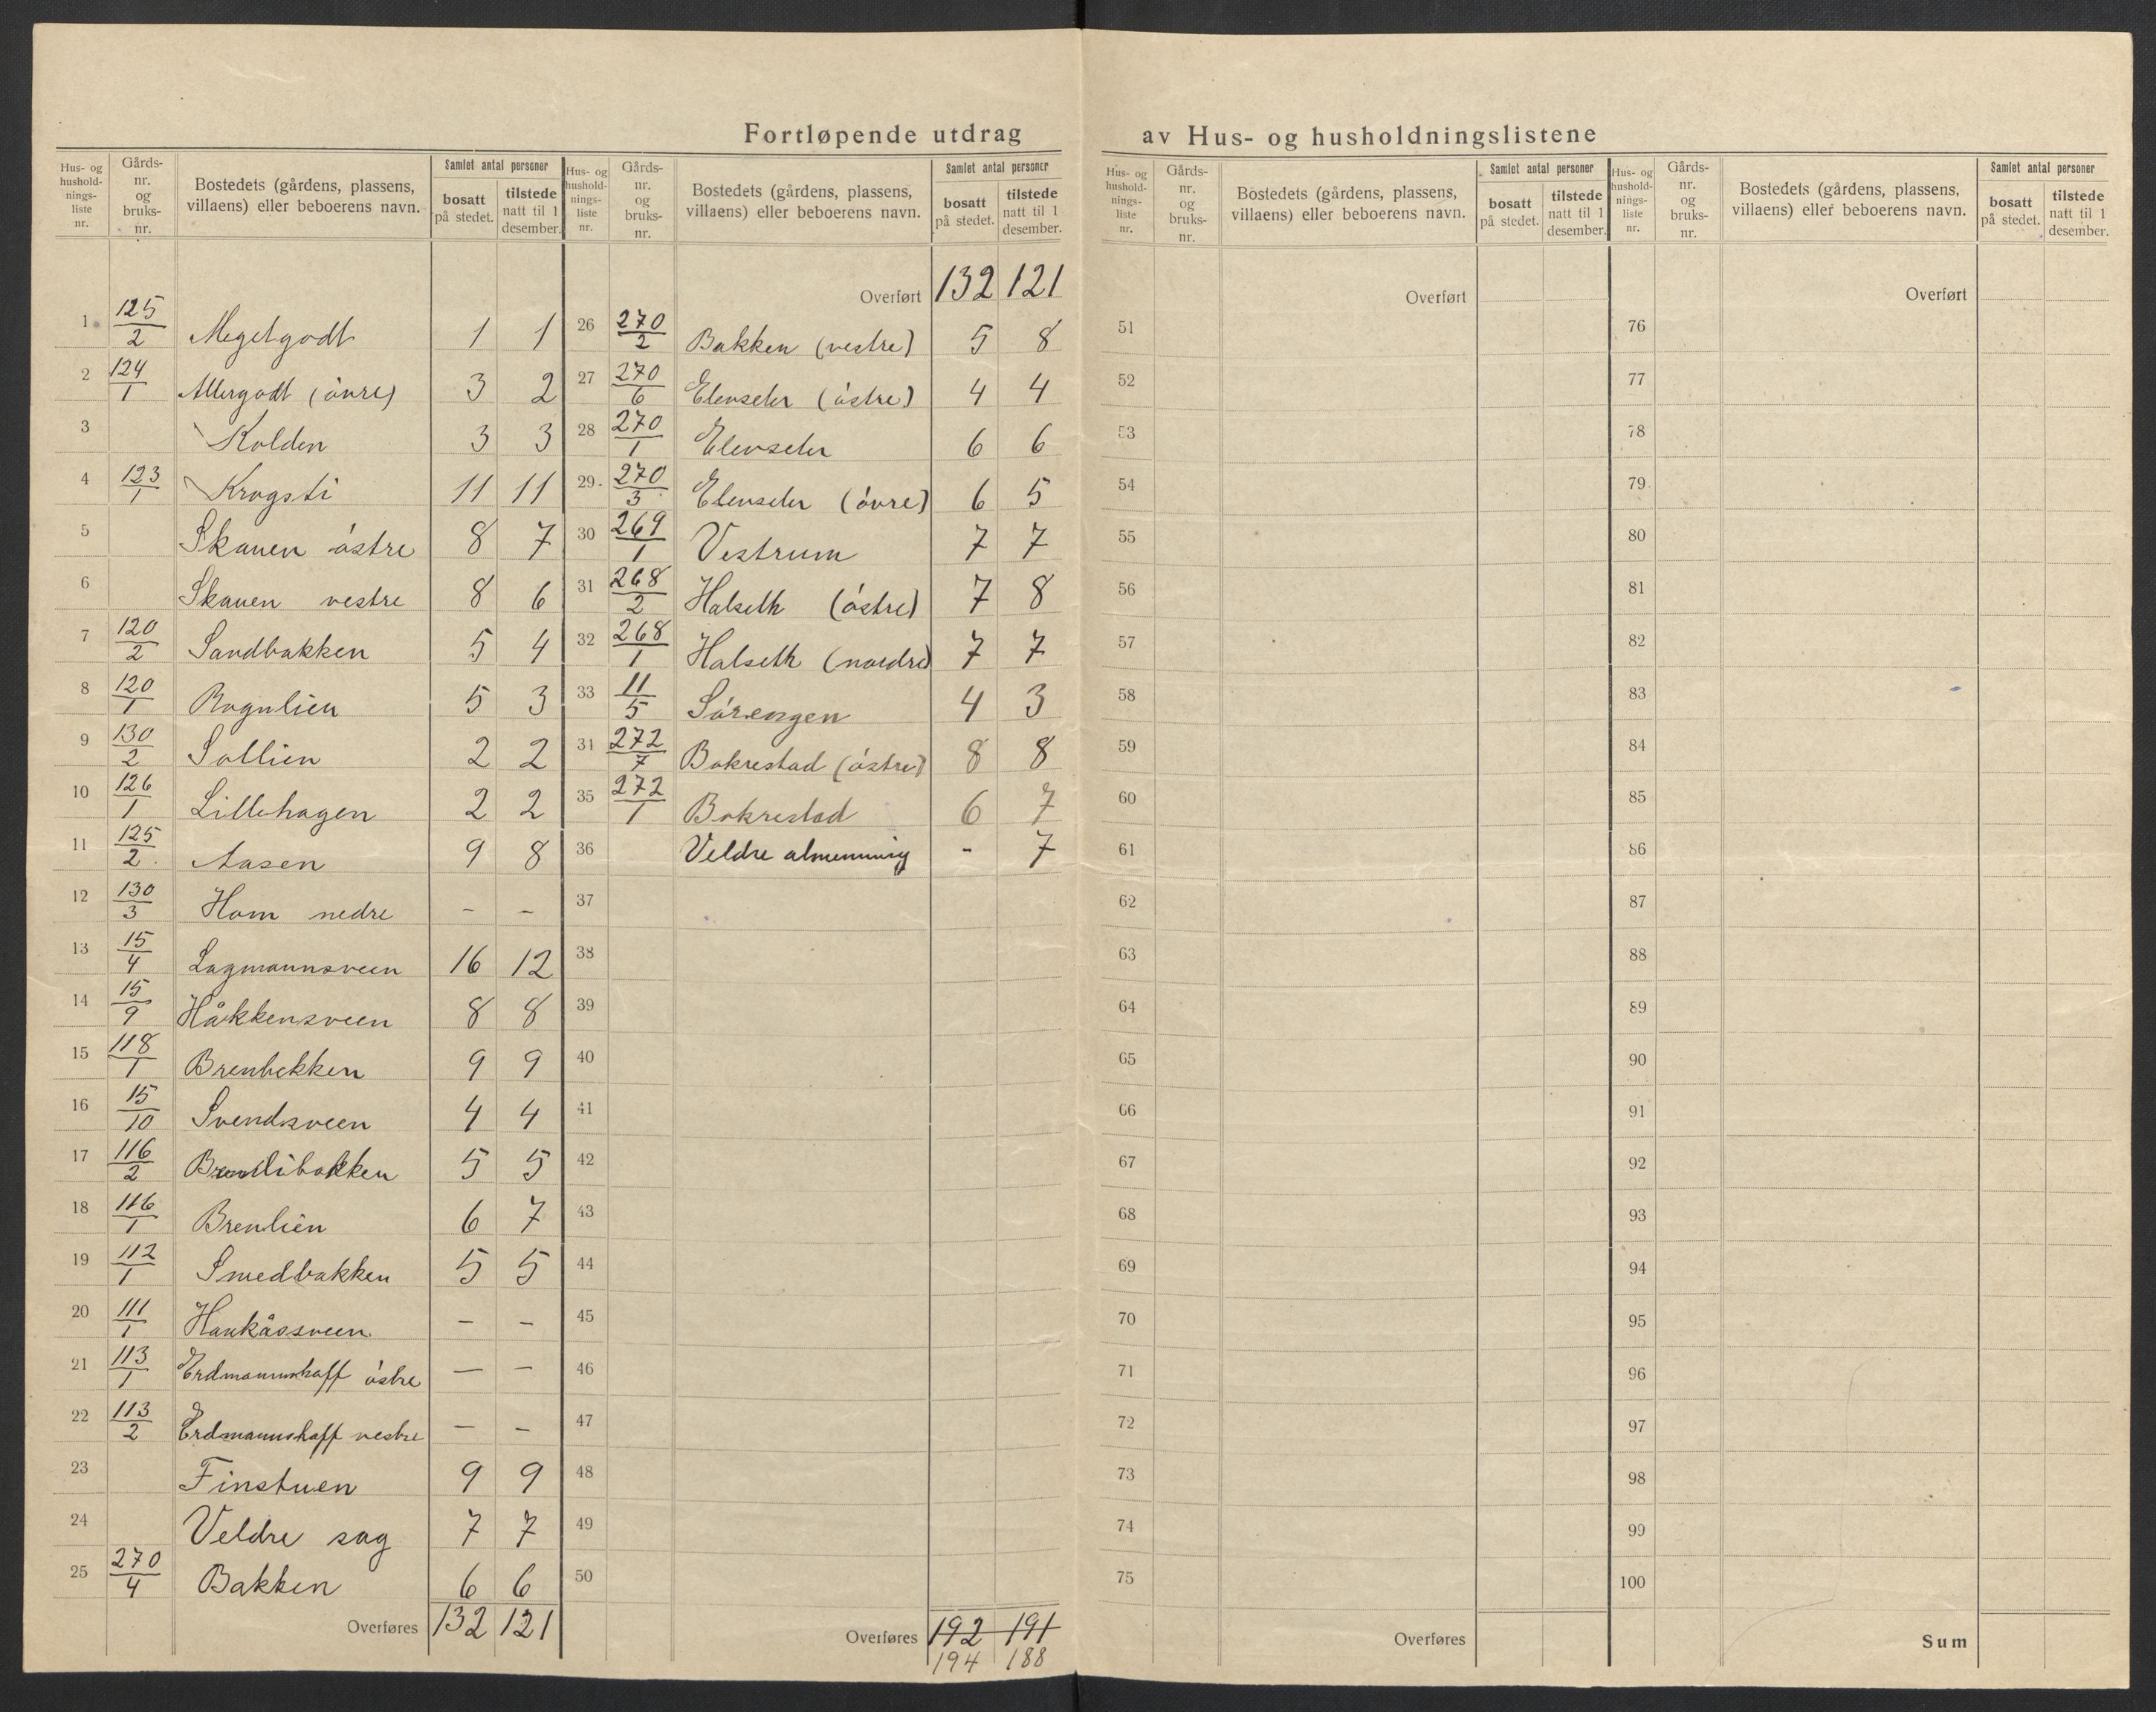 Fortløpende utdrag av Hus- og husholdningslistene
Hus- og hushold- nings- liste nr.
Gårds- nr. og bruks- nr.
Bostedets (gårdens, plassens, villaens) eller beboerens navn.
Samlet antal personer
bosatt på stedet.
tilstede natt til 1 desember.
1 125/2 Megetgodt 1 1
2 124/1 Allergodt (övre) 3 2
3 Kolden 3 3
4 123/1 Krogsti 11 11
5 Skauen östre 8 7
6 Skauen vestre 8 6
7 120/2 Sandbakken 5 4
8 120/1 Rognlien 5 3
9 130/2 Sollien 2 2
10 126/1 Lillehagen 2 2
11 125/2 Aasen 9 8
12 130/3 Hom nedre - -
13 15/4 Lagmannsveen 16 12
14 15/9 Håkkensveen 8 8
15 118/1 Brenbekken 9 9
16 15/10 Svendsveen 4 4
17 116/2 Brenlibakken 5 5
18 116/1 Brenlien 6 7
19 112/1 Smedbakken 5 5
20 111/1 Haukåosveen - -
21 113/1 Erdmannshaff östre - -
22 113/2 Erdmannshaff vestre - -
23 Finstuen 9 9
24 Veldre sag 7 7
25 270/4 Bakken 6 6
Overføres 132 121
Hus- og hushold- nings- liste nr.
Gårds- nr. og bruks- nr.
Bostedets (gårdens, plassens, villaens) eller beboerens navn.
Samlet antal personer
bosatt på stedet.
tilstede natt til 1 desember.
Overført 132 121
26 270/2 Bakken (vestre) 5 8
27 270/6 Elevseter (östre) 4 4
28 270/1 Elevseter 6 6
29. 270/3 Elevseter (övre) 6 5
30 269/1 Vestrum 7 7
31 268/2 Halseth (östre) 7 8
32 268/1 Halseth (nordre) 7 7
33 11/5 Sörengen 4 3
31 272/7 Bokrestad (östre) 8 8
35 272/1 Bokrestad 6 7
36 Veldre almenning - 7
37
38
39
40
41
42
43
44
45
46
47
48
49
50
Overføres 192 191
194 188
Hus- og hushold- nings- liste nr.
Gårds- nr. og bruks- nr.
Bostedets (gårdens, plassens, villaens) eller beboerens navn.
Samlet antal personer
bosatt på stedet.
tilstede natt til 1 desember.
Overført
51
52
53
54
55
56
57
58
59
60
61
62
63
64
65
66
67
68
69
70
71
72
73
74
75
Overføres
Hus- og hushold- nings- liste nr.
Gårds- nr. og bruks- nr.
Bostedets (gårdens, plassens, villaens) eller beboerens navn.
Samlet antal personer
bosatt på stedet.
tilstede natt til 1 desember.
Overført
76
77
78
79
80
81
82
83
84
85
86
87
88
89
90
91
92
93
94
95
96
97
98
99
100
Sum